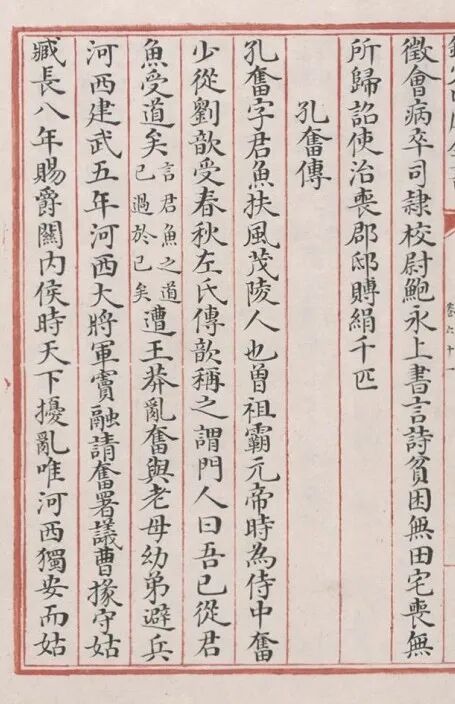 徵會病卒司隸校尉鮑永上書言詩貧困無田宅喪無
所歸詔使治喪郡邸賻絹千匹
孔奮傳
孔奮字君魚扶風茂陵人也曾祖霸元帝時為侍中奮
少從劉歆受春秋左氏傳歆稱之謂門人曰吾已從君
魚受道矣言君魚之道已過於已矣遭王莽亂奮與老母幼弟避兵
河西建武五年河西大將軍竇融請奮署議曹掾守姑
臧長八年賜爵關內侯時天下擾亂唯河西獨安而姑